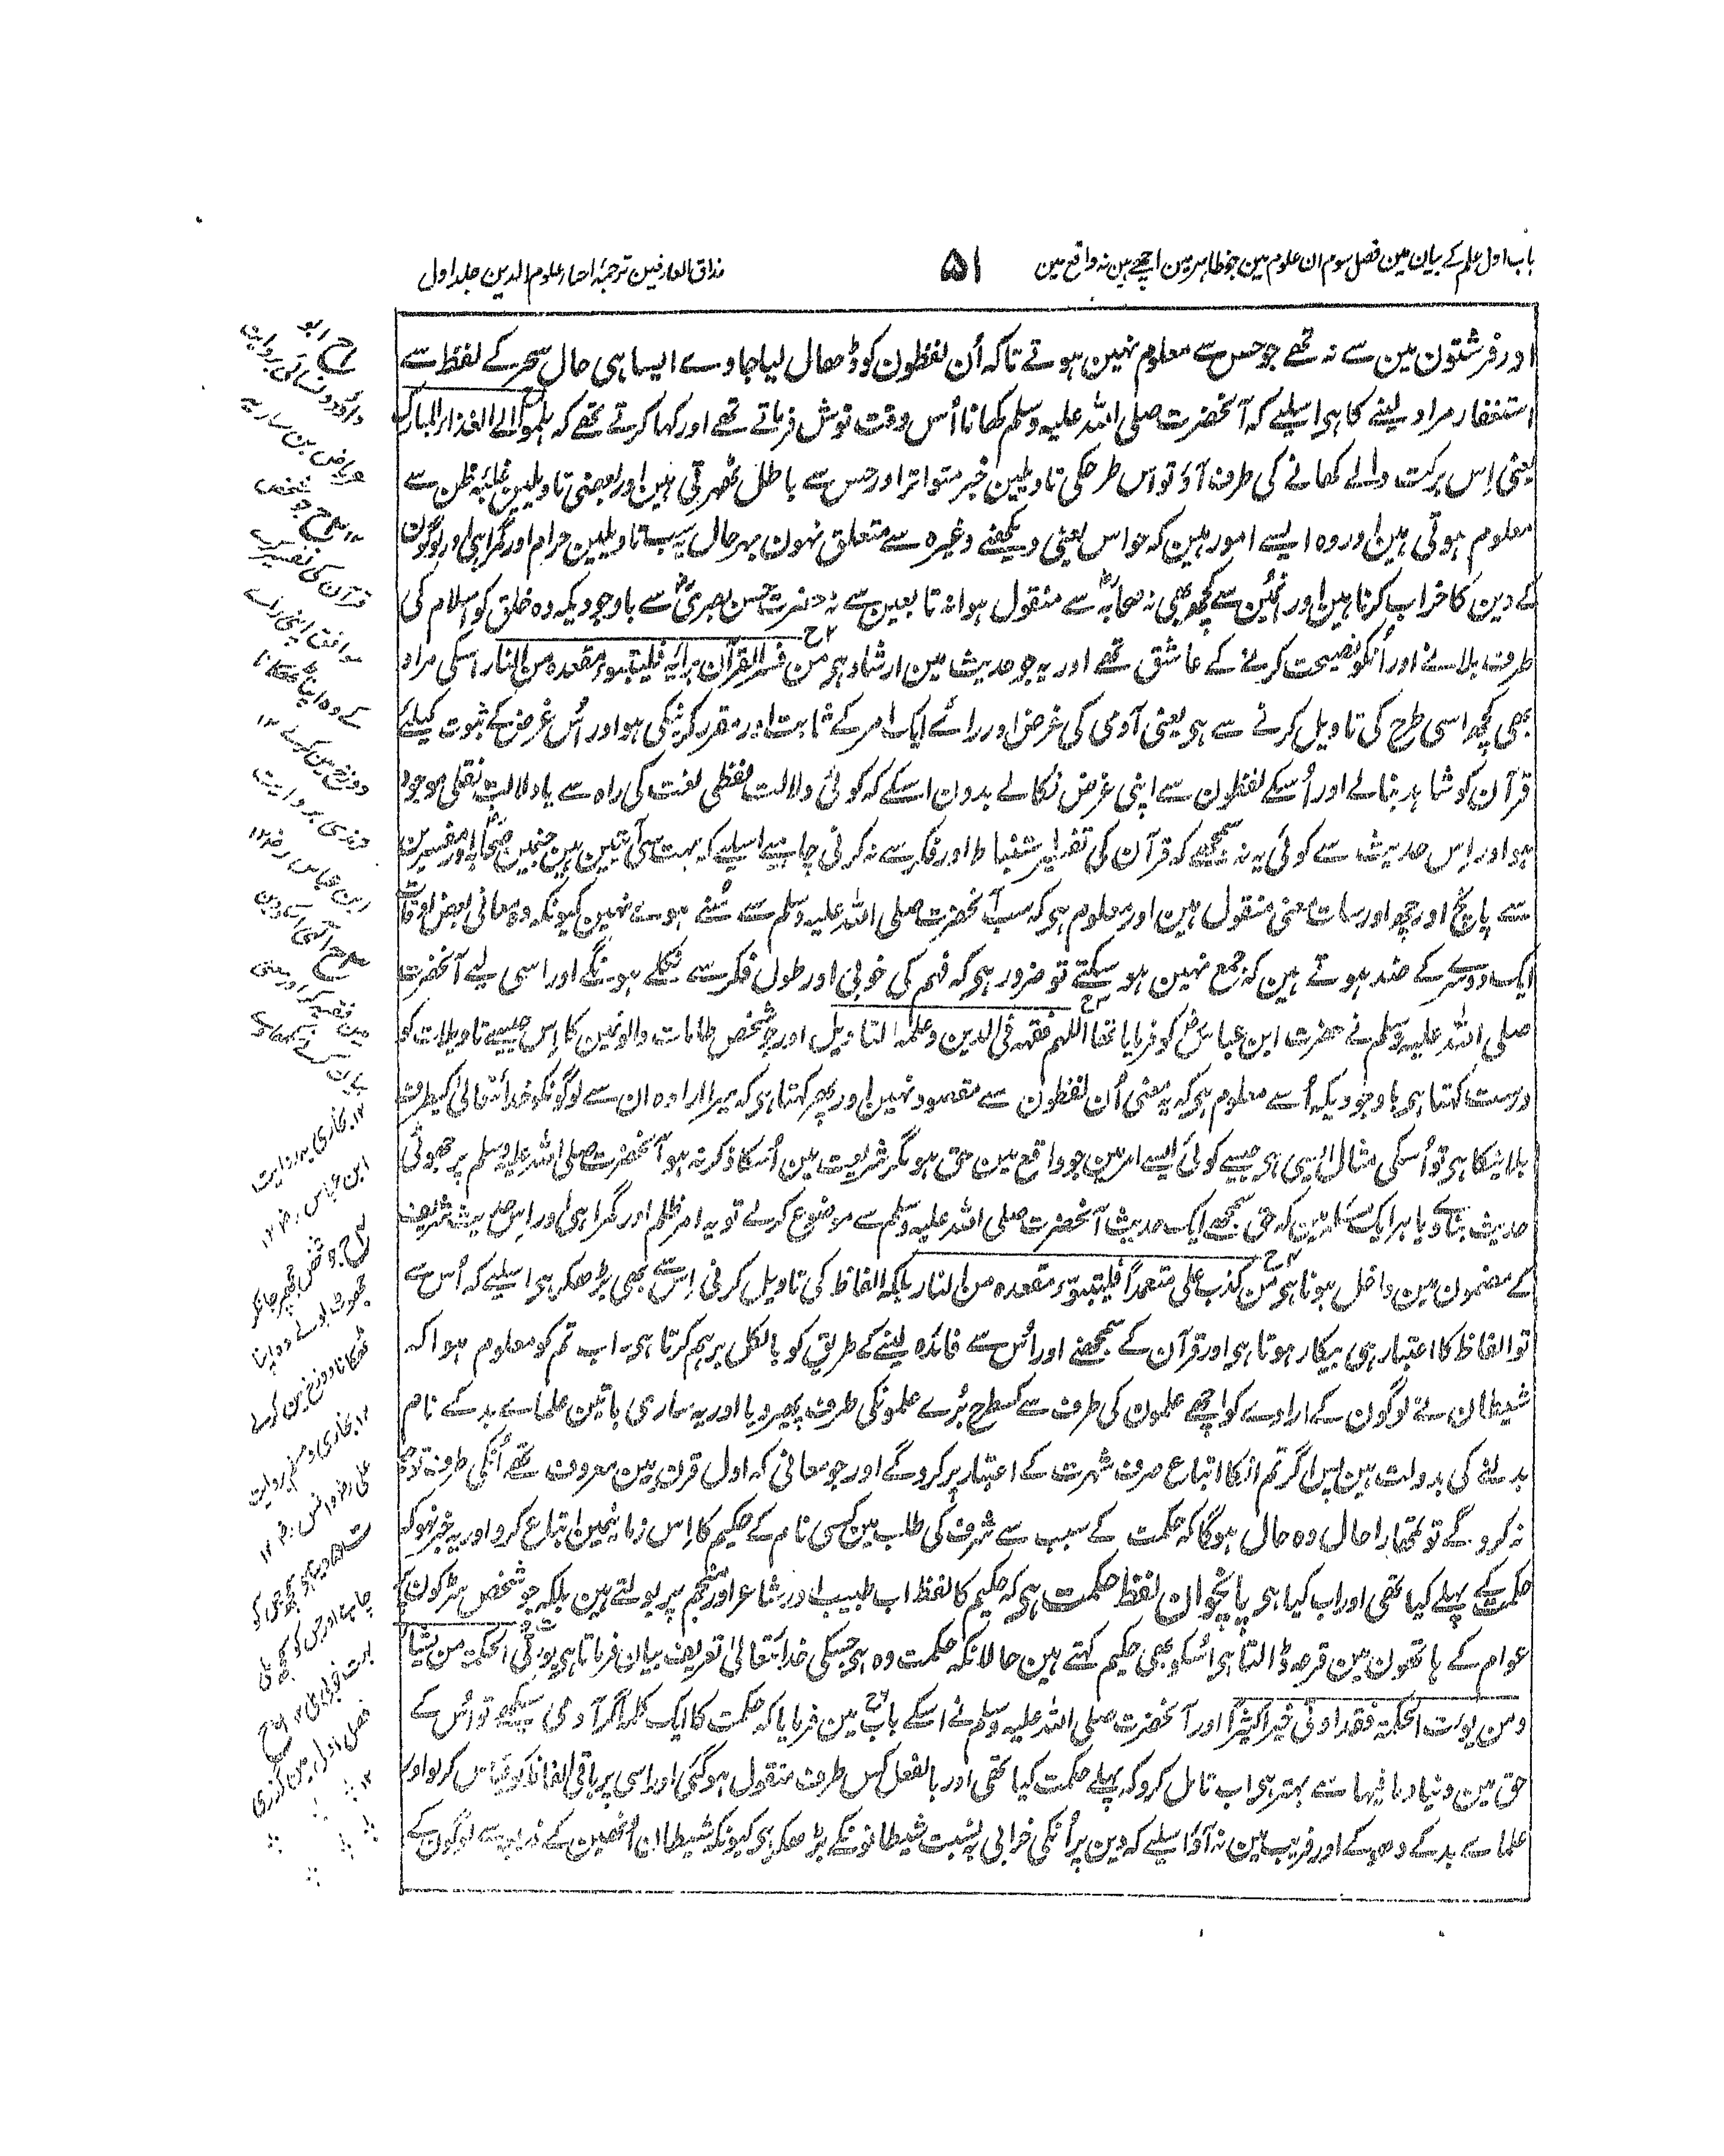 باب اول علم کے بیان مین فصل سوم ان علوم مین جو ظاہر مین اچھے ہین نہ واقع مین
۵۱
مذاق العارفین ترجمۂ احیاء علوم الدین جلد اول
اور فرشتون مین سے نہ تھے جو حس سے معلوم نہین ہوتے تاکہ اُن لفظون کو ڈھال لیا جاوے ایسا ہی حال سحر کے لفظ سے
استغفار مراد لینے کا ہی اسلیے کہ آنحضرت صلی اللہ علیہ وسلم کھانا اُس وقت نوش فرماتے تھے اور کہا کرتے تھے کہ ہلموا الی الغذاء المبارک
یعنی اِس برکت والے کھانے کی طرف آؤ تو اس طرحکی تاویلین خبر متواتر اور حس سے باطل ٹھہرتی ہین اور بعضی تاویلین غلبۂ ظن سے
معلوم ہوتی ہین اور وہ ایسے امور ہین کہ حواس یعنی دیکھنے وغیرہ سے متعلق نہون بہر حال یہ سب تاویلین حرام اور گمراہی اور لوگون
کے دین کا خراب کرنا ہین اور انمین سے کچھ بھی نہ صحابہؓ سے منقول ہوا نہ تابعین سے نہ حضرت حسن بصریؒ سے باوجودیکہ وہ خلق کو اسلام کی
طرف بلانے اور اُنکو نصیحت کرنے کے عاشق تھے اور یہ جو حدیث مین ارشاد ہی من فسر القرآن برائیہ فلیتبوء مقعدہ من النار اسکی مراد
بھی کچھ اسی طرح کی تاویل کرنے سے ہی یعنی آدمی کی غرض اور رائے ایک امر کے ثابت اور مقرر کرنیکی ہو اور اُس غرض کے ثبوت کیلیے
قرآن کو شاہد بنالے اور اُسکے لفظون سے اپنی غرض نکالے بدون اسکے کہ کوئی دلالت لفظی لغت کی راہ سے یا دلالت نقلی موجود
ہو اور اِس حدیث سے کوئی یہ نہ سمجھے کہ قرآن کی تفسیر استنباط اور فکر سے نہ کرنی چاہیے اسلیے کہ بہت سی آیتین ہین جنمین صحابہؓ اور مفسرین
سے پانچ اور چھ اور سات معنی منقول ہین اور معلوم ہی کہ سب آنحضرت صلی اللہ علیہ وسلم سے سُنے ہوے نہین کیونکہ وہ معانی بعض اوقات
ایک دوسرے کے ضد ہوتے ہین کہ جمع نہین ہو سکتے تو ضرور ہی کہ فہم کی خوبی اور طول فکر سے نکلے ہونگے اور اسی لیے آنحضرت
صلی اللہ علیہ وسلم نے حضرت ابن عباسؓ کو فرمایا تھا اللہم فقہہ فی الدین وعلمہ التاویل اور جو شخص طامات والونمین کا اِس جیسے تاویلات کو
درست کہتا ہی باوجودیکہ اُسے معلوم ہی کہ یہ معنی اُن لفظون سے مقصود نہین اور پھر کہتا ہی کہ میرا ارادہ ان سے لوگونکو خدا تعالیٰ کیطرف
بلانیکا ہی تو اُسکی مثال ایسی ہی جیسے کوئی ایسے امر مین جو واقع مین حق ہو مگر شریعت مین اُسکا ذکر نہ ہو آنحضرت صلی اللہ علیہ وسلم پر جھوٹی
حدیث بنا دے یا ہر ایک مسئلہ مین کہ حق سمجھے ایک حدیث آنحضرت صلی اللہ علیہ وسلم سے موضوع کرلے تو یہ امر ظلم اور گمراہی اور اِس حدیث شریف
کے مضمون مین داخل ہونا ہی من کذب علی متعمداً فلیتبوء مقعدہ من النار بلکہ الفاظ کی تاویل کرنی اِس سے بھی بڑھکر ہی اسلیے کہ اُس سے
تو الفاظ کا اعتبار ہی بیکار ہوتا ہی اور قرآن کے سمجھنے اور اُس سے فائدہ لینے کے طریق کو بالکل برہم کرتا ہی۔ اب تم کو معلوم ہوا کہ
شیطان نے لوگون کے ارادے کو اچھے علمون کی طرف سے کسطرح بُرے علمونکی طرف پھیر دیا اور یہ ساری باتین علمائے بد کے نام
بدلنے کی بدولت ہین پس اگر تم انکا اتباع صرف شہرت کے اعتبار پر کروگے اور جو معانی کہ اول قرن مین معروف تھے اُنکی طرف توجہ
نہ کروگے تو تمھارا حال وہ حال ہوگا کہ حکمت کے سبب سے شرف کی طلب مین کسی نام کے حکیم کا اِس زمانہمین اتباع کرو اور یہ خبر نہو کہ
حکمت پہلے کیا تھی اور اب کیا ہی پانچوان لفظ حکمت ہی کہ حکیم کا لفظ اب طبیب اور شاعر اور منجم پر بولتے ہین بلکہ جو شخص سڑکون پر
عوام کے ہاتھون مین قرعہ ڈالتا ہی اُسکو بھی حکیم کہتے ہین حالانکہ حکمت وہ ہی جسکی خدا تعالیٰ تعریف بیان فرماتا ہی یؤتی الحکمۃ من یشاء
ومن یوت الحکمۃ فقد اوتی خیراً کثیراً اور آنحضرت صلی اللہ علیہ وسلم نے اسکے باب مین فرمایا کہ حکمت کا ایک کلمہ اگر آدمی سیکھے تو اُس کے
حق مین دنیا وما فیہا سے بہتر ہی اب تامل کرو کہ پہلے حکمت کیا تھی اور بالفعل کس طرف منقول ہوگئی اور اسی پر باقی الفاظ کو قیاس کرلو اور
علمائے بد کے دھوکے اور فریب مین نہ آؤ اسلیے کہ دین پر اُنکی خرابی بہ نسبت شیطانونکے بڑھکر ہی کیونکہ شیطان اُنھین کے ذریعہ سے لوگون کے
ح ابو
داؤد و نسائی بروایت
عرباض بن ساریہ
۱۲ ح جو شخص
قرآن کی تفسیر
موافق اپنی رائے
کے وہ اپنا ٹھکانا
دوزخ مین کرلے ۱۲
ترمذی بروایت
ابن عباس رض ۱۲
ح الٰہی اسکو دین
مین فقیہ کر اور معنی
بیان کرنے سکھادے
۱۲ بخاری بروایت
ابن عباس رض ۱۲
ح جو شخص مجھپر جانکر
جھوٹ بولے وہ اپنا
ٹھکانا دوزخ مین کرلے
۱۲ بخاری و مسلم بروایت
علی رض و انس رض ۱۲
دیتا ہی سمجھ جس کو
چاہے اور جس کو سمجھ ملی
بہت خوبی ملی ۱۲ ح
فصل اول مین گذری
۱۲